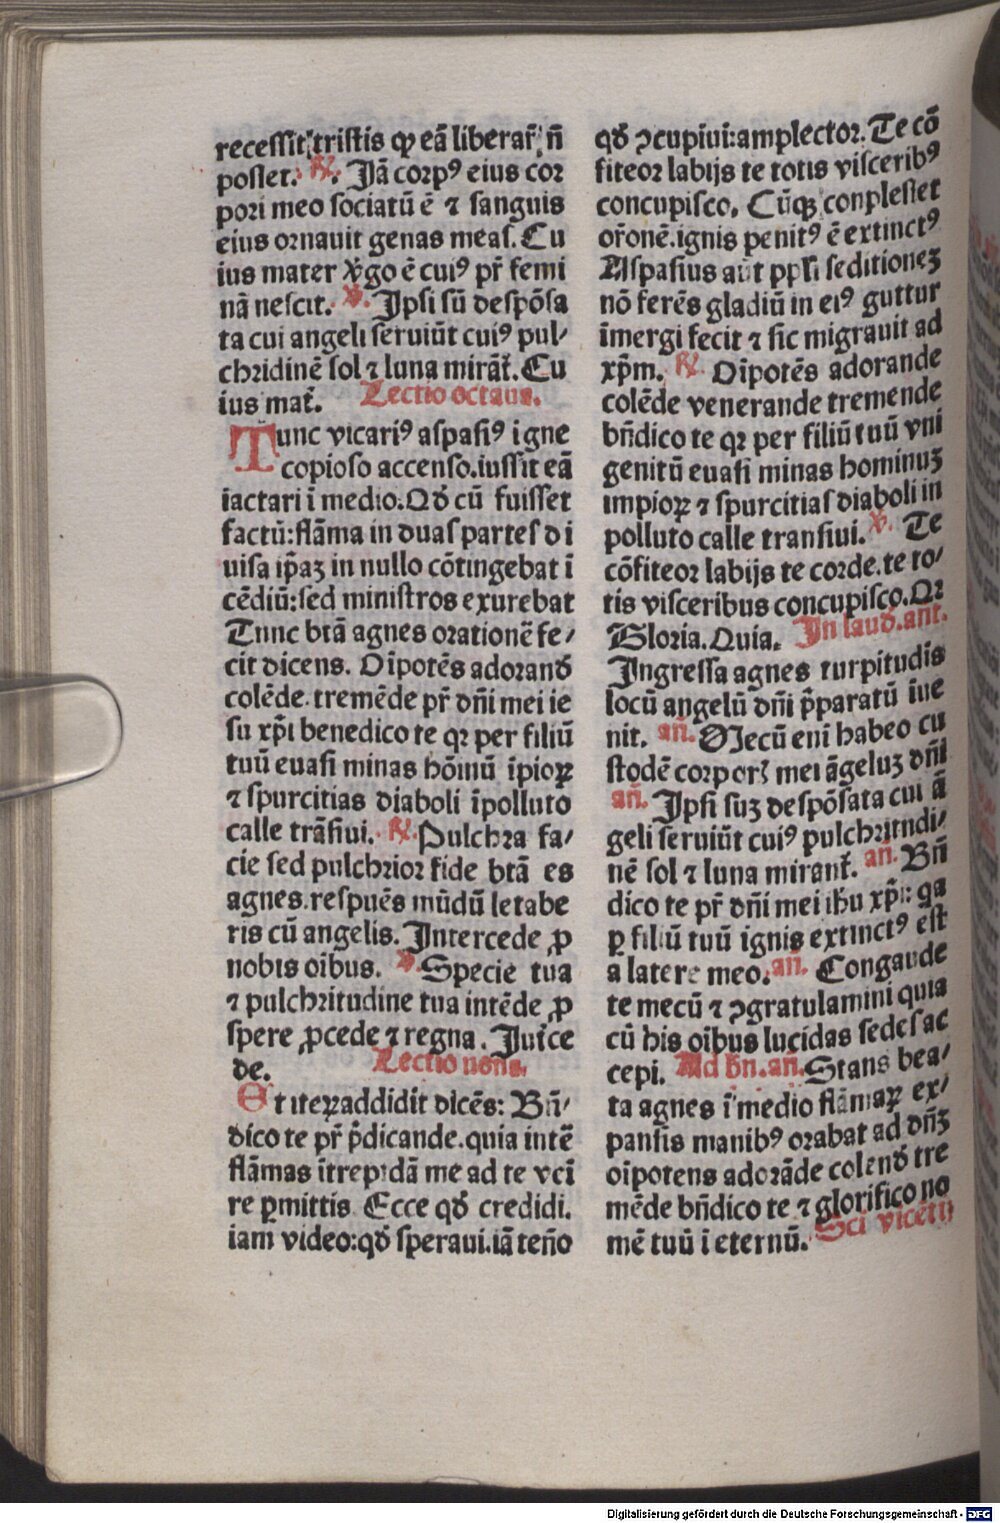 recessit: tristis qꝫ eā liberar̄: n̄
posset. ℟. Jā corpꝰ eius cor
pori meo sociatū ē ⁊ sanguis
eius ornauit genas meas. Cu
ius mater v̄go ē cuiꝰ pr̄ femi
nā nescit. ℣. Jpsi sū despōsa
ta cui angeli seruiūt cuiꝰ pul⸗
chridinē sol ⁊ luna mirāt̄. Cu
ius mat̄. Lectio octaua.
Tunc vicariꝰ aspasiꝰ igne
copioso accenso.iussit eā
iactari ī medio.Qd̄ cū fuisset
factū:flāma in duas partes di
uisa ip̄aꝫ in nullo cōtingebat ī
cēdiū:sed ministros exurebat
Tunc btā agnes orationē fe⸗
cit dicens. Oīpotēs adorand̄
colēde.tremēde pr̄ dn̄i mei ie
su xp̄i benedico te qꝛ per filiū
tuū euasi minas hōinū īpioꝝ
⁊ spurcitias diaboli īpolluto
calle trāsiui. ℟. Pulchra fa⸗
cie sed pulchrior fide btā es
agnes.respuēs mūdū letabe
ris cū angelis. Jntercede ꝓ
nobis oībus. ℣. Specie tua
⁊ pulchritudine tua intēde ꝓ
spere ꝓcede ⁊ regna. Jnt̄ce
de. Lectio nona.
Et iteꝝ addidit dicēs: Bn̄⸗
dico te pr̄ p̄dicande.quia intē
flāmas ītrepidā me ad te veī
re ꝑmittis Ecce qd̄ credidi.
iam video:qd̄ speraui.iā teno
qd̄ ꝯcupiui:amplector. Te cō
fiteor labijs te totis visceribꝰ
concupisco. Cūqꝫ conplesset
or̄onē.ignis penitꝰ ē extinctꝰ
Aspasius aūt pp̄li seditioneꝫ
nō ferēs gladiū in eiꝰ guttur
īmergi fecit ⁊ sic migrauit ad
xp̄m. ℟. Oīpotēs adorande
colēde venerande tremende
bn̄dico te qꝛ per filiū tuū vni
genitū euasi minas hominuꝫ
impioꝝ ⁊ spurcitias diaboli in
polluto calle transiui. ℣. Te
cōfiteor labijs te corde.te to⸗
tis visceribus concupisco.Qꝛ
Gloria.Quia. Jn laud̄.ant.
Jngressa agnes turpitudīs
locū angelū dn̄i p̄paratū īue
nit. an̄. Mecū enī habeo cu
stodē corporꝭ mei āgeluꝫ dn̄i
an̄. Jpsi suꝫ despōsata cui ā
geli seruiūt cuiꝰ pulchritudi⸗
nē sol ⁊ luna mirant̄. an̄. Bn̄
dico te pr̄ dn̄i mei ihu xp̄i: qa
ꝑ filiū tuū ignis extinctꝰ est
a latere meo. an̄. Congaude
te mecū ⁊ ꝯgratulamini quia
cū his oībus lucidas sedes ac
cepi. Ad bn̄.an̄. Stans bea⸗
ta agnes ī medio flāmaꝝ ex⸗
pansis manibꝰ orabat ad dn̄ꝫ
oīpotens adorāde colend̄ tre
mēde bn̄dico te ⁊ glorifico no
mē tuū ī eternū. Sci vicētij
Digitalisierung gefördert durch die Deutsche Forschungsgemeinschaft - DFG